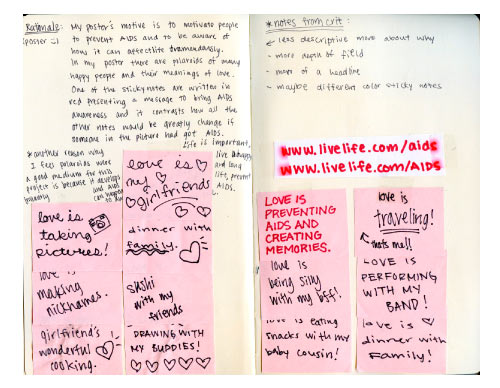 Rationale: My poster's motive is to motivate people
(poster =) to prevent AIDS and to be aware of
how it can affect life tramendously.
In my poster there are polaroids of many
happy people and their meanings of love.
One of the sticky notes are written in
red presenting a message to bring AIDS
awareness and it contrasts how all the
other notes would be greatly change if
someone in the picture had got AIDS.
life is important,
live happy
and long
life, prevent
AIDS.
*another reason why
I feel polaroids were
a good medium for this
project is because it develops
and AIDS
can happen
love is
my
girlfriends
love is
taking
pictures!
dinner with
family.
love is
making
nicknames.
sushi
with my
friends
girlfriend's
wonderful
cooking.
DRAWING WITH
MY BUDDIES!
*notes from crit:
less descriptive more about why
- more depth of field
- more of a headline
- maybe different color sticky notes
www.livelife.com/aids
www.livelife.com/AIDS
LOVE IS
PREVENTING
AIDS AND
CREATING
MEMORIES.
love is
traveling!
thats me!!
love is
being silly
with my bff!
LOVE IS
PERFORMING
WITH MY
BAND!
love is eating
snacks with my
baby cousin!
love is
dinner with
family!